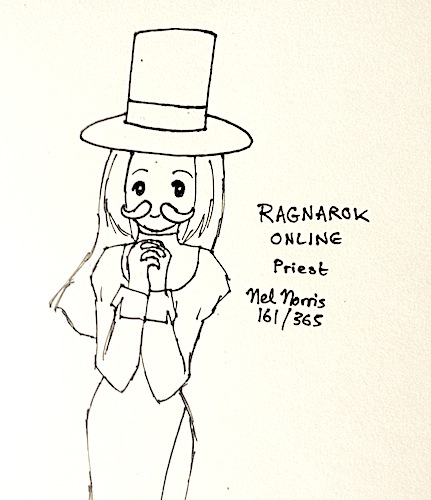 RAGNAROK
ONLINE
Priest
Nel Norris
161/365